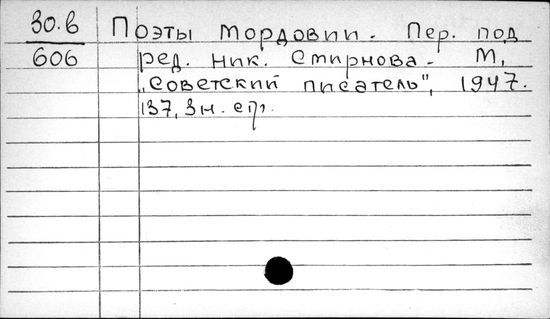 30.в Поэты Мордовии. Пер. под
606 ред. Ник. Смирнова. М,
"Советский писатель", 1947.
137, 3н. стр.